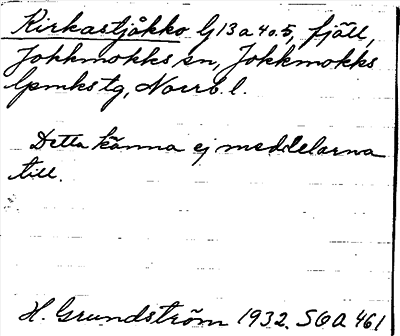 Kirkastjåkko lj 13 a 4 o. 5, fjäll,
Jokkmokks sn, Jokkmokks
lpmkstg, Norrb. l.
Detta känna ej meddelarna
till.
H. Grundström 1932. SOA 461